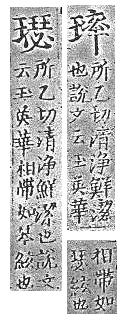 所乙切清淨鮮潔
也說文云玉英華
相帶如
瑟絃也
璱
所乙切清淨鮮潔也說文
云玉英華相帶如瑟絃也